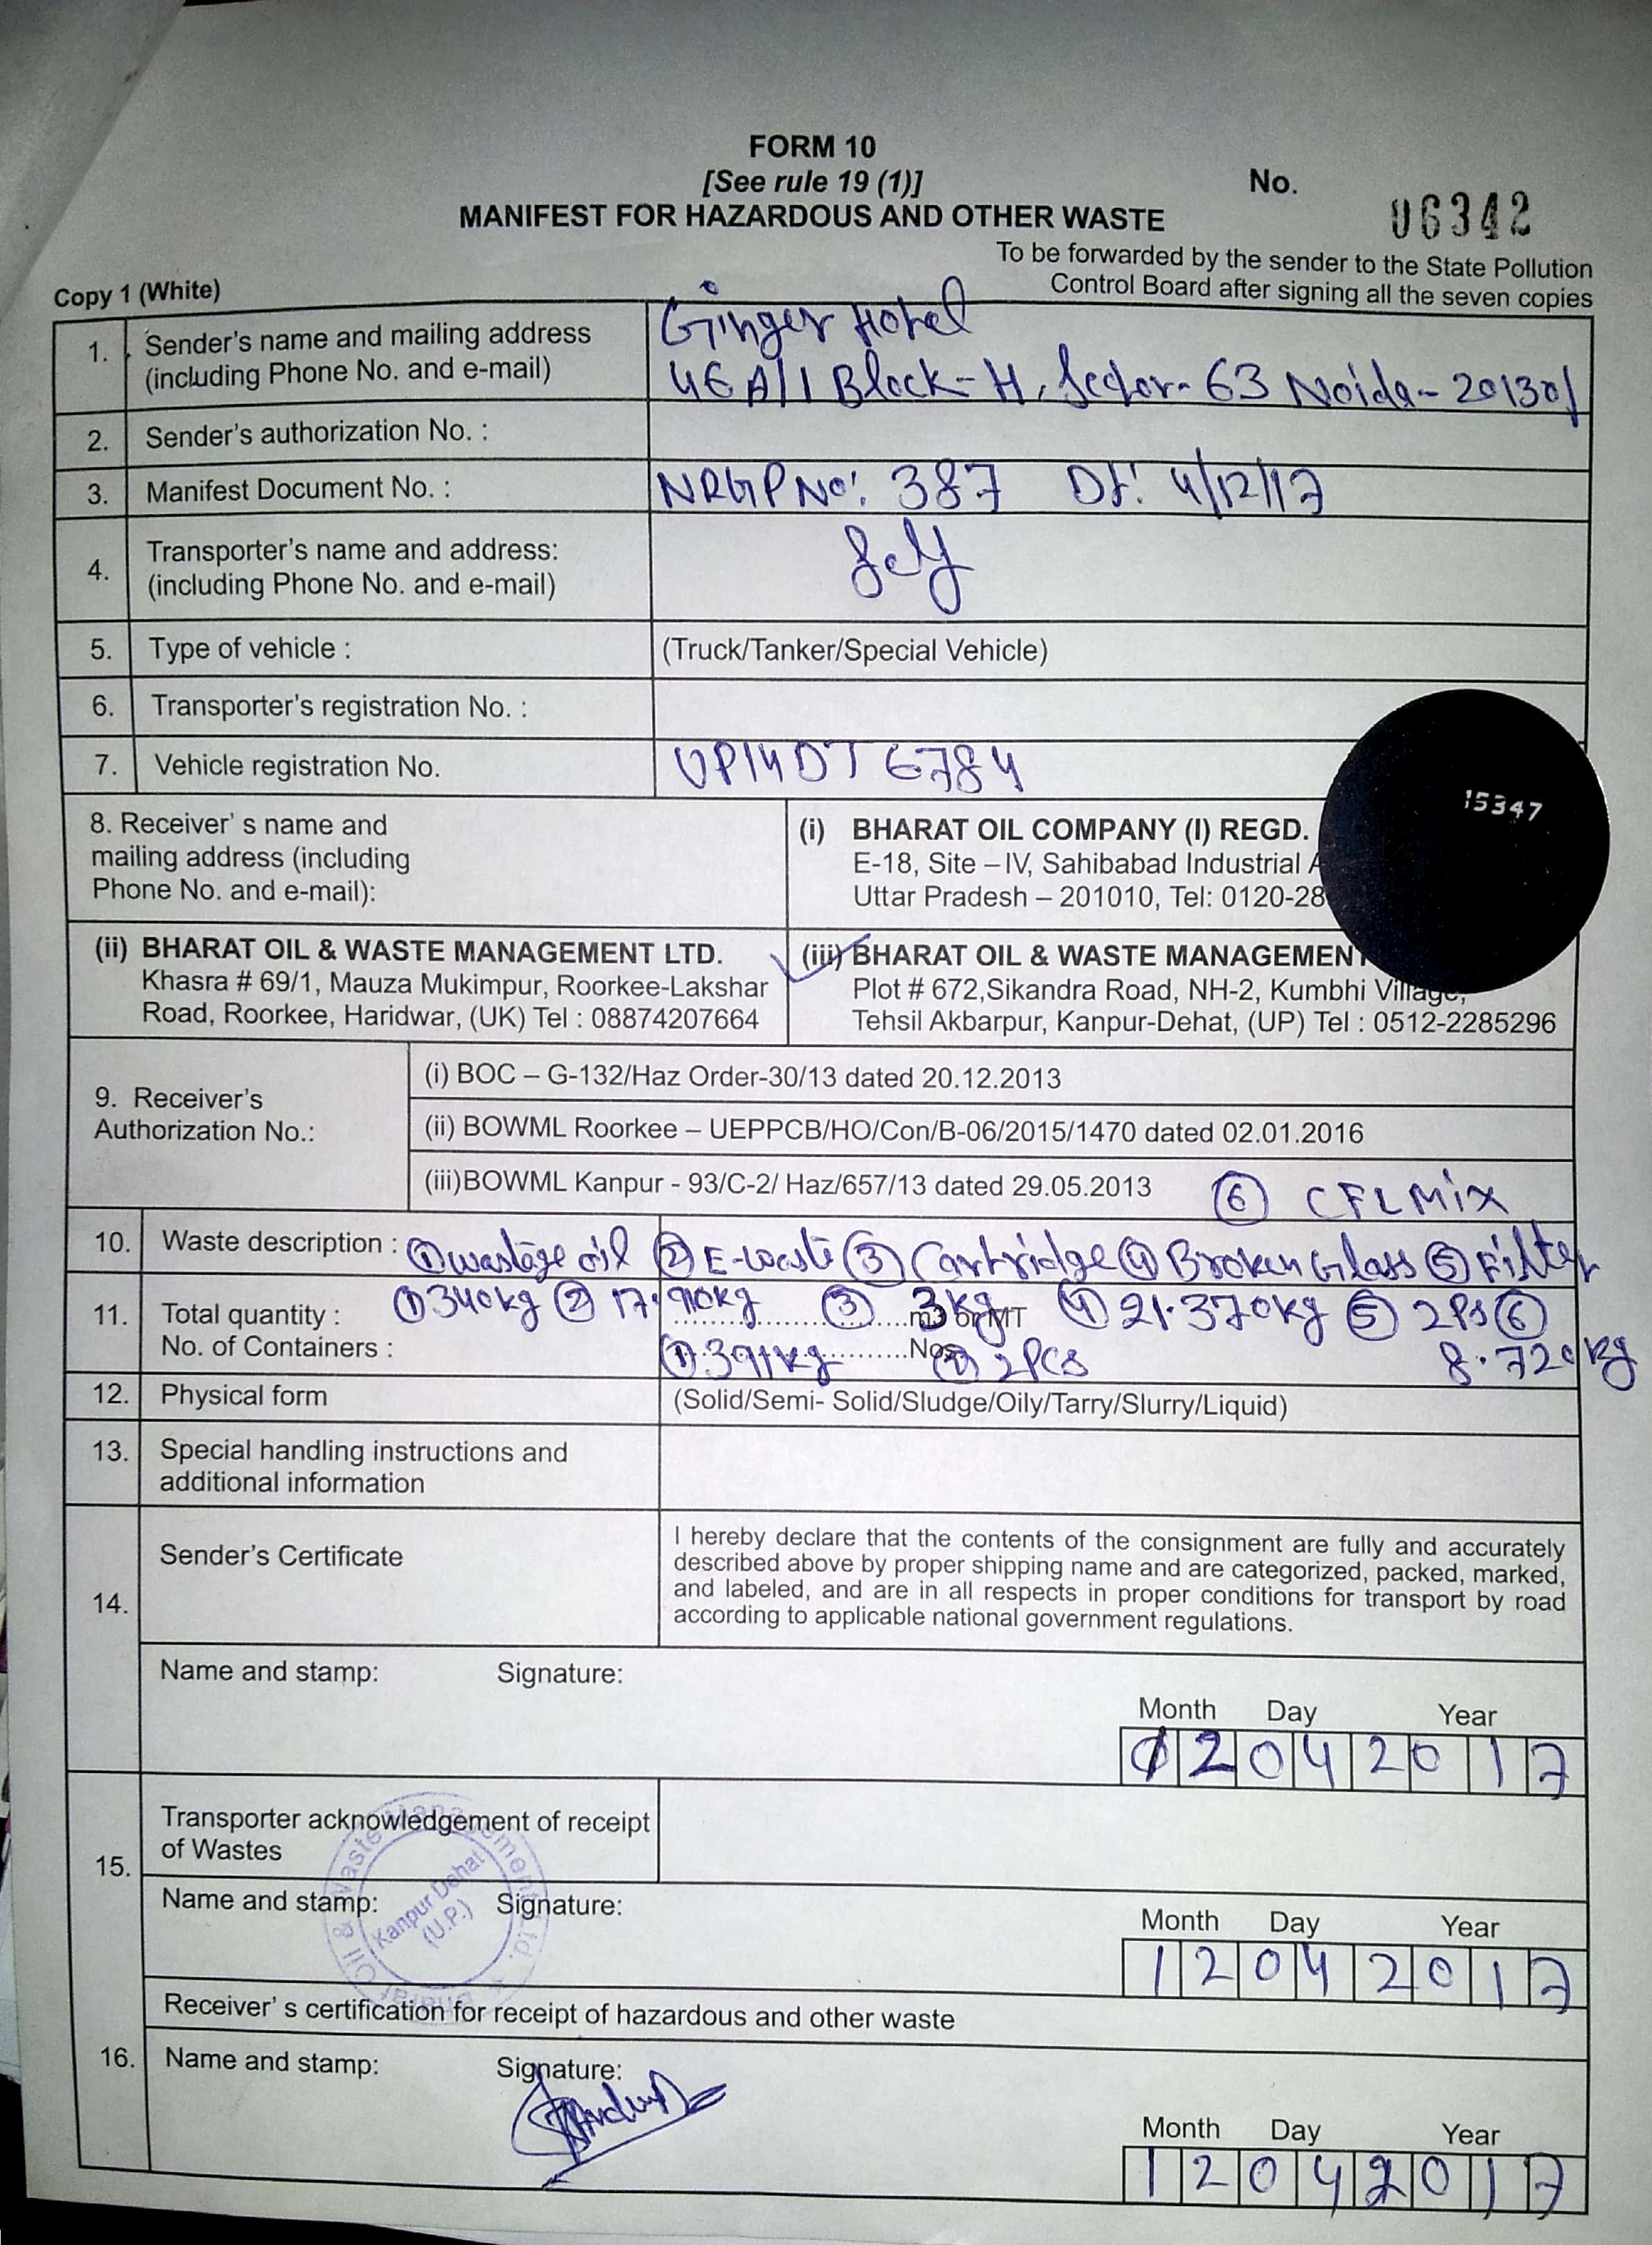 FORM 10
[See rule 19 (1)]
No.
06342
MANIFEST FOR HAZARDOUS AND OTHER WASTE
To be forwarded by the sender to the State Pollution
Control Board after signing all the seven copies
Copy 1 (White)
1. Sender's name and mailing address
(including Phone No. and e-mail)
Ginger Hotel
46 A/1 Block-H, Sector-63 Noida-201301
2. Sender's authorization No. :
3. Manifest Document No. : NRGP No: 387 Dt: 4/12/17
4. Transporter's name and address:
(including Phone No. and e-mail)
Self
5. Type of vehicle : (Truck/Tanker/Special Vehicle)
6. Transporter's registration No. :
7. Vehicle registration No. UP14DT 6784
15347
8. Receiver' s name and
mailing address (including
Phone No. and e-mail):
(i) BHARAT OIL COMPANY (I) REGD.
E-18, Site – IV, Sahibabad Industrial A
Uttar Pradesh – 201010, Tel: 0120-28
(ii) BHARAT OIL & WASTE MANAGEMENT LTD.
Khasra # 69/1, Mauza Mukimpur, Roorkee-Lakshar
Road, Roorkee, Haridwar, (UK) Tel : 08874207664
(iii) BHARAT OIL & WASTE MANAGEMENT
Plot # 672,Sikandra Road, NH-2, Kumbhi Village,
Tehsil Akbarpur, Kanpur-Dehat, (UP) Tel : 0512-2285296
9. Receiver's
Authorization No.:
(i) BOC – G-132/Haz Order-30/13 dated 20.12.2013
(ii) BOWML Roorkee – UEPPCB/HO/Con/B-06/2015/1470 dated 02.01.2016
(iii)BOWML Kanpur - 93/C-2/ Haz/657/13 dated 29.05.2013
⑥ CFL Mix
10. Waste description : ① wastage oil ② E-waste ③ Cartridge ④ Broken Glass ⑤ Filter
11. Total quantity : ① 340kg ② 17.910kg ③ 3kg m3 or MT ④ 21.370kg ⑤ 2Ps ⑥
8.720kg
No. of Containers : ① 391kg Nos 2PCS
12. Physical form (Solid/Semi- Solid/Sludge/Oily/Tarry/Slurry/Liquid)
13. Special handling instructions and
additional information
14. Sender's Certificate
I hereby declare that the contents of the consignment are fully and accurately
described above by proper shipping name and are categorized, packed, marked,
and labeled, and are in all respects in proper conditions for transport by road
according to applicable national government regulations.
Name and stamp: Signature:
Month Day Year
12 04 2017
15. Transporter acknowledgement of receipt
of Wastes
Name and stamp: Signature:
Bharat Oil & Waste Management Ltd.
Kanpur Dehat
(U.P.)
Month Day Year
12 04 2017
Receiver' s certification for receipt of hazardous and other waste
16. Name and stamp: Signature:
Month Day Year
12 04 2017